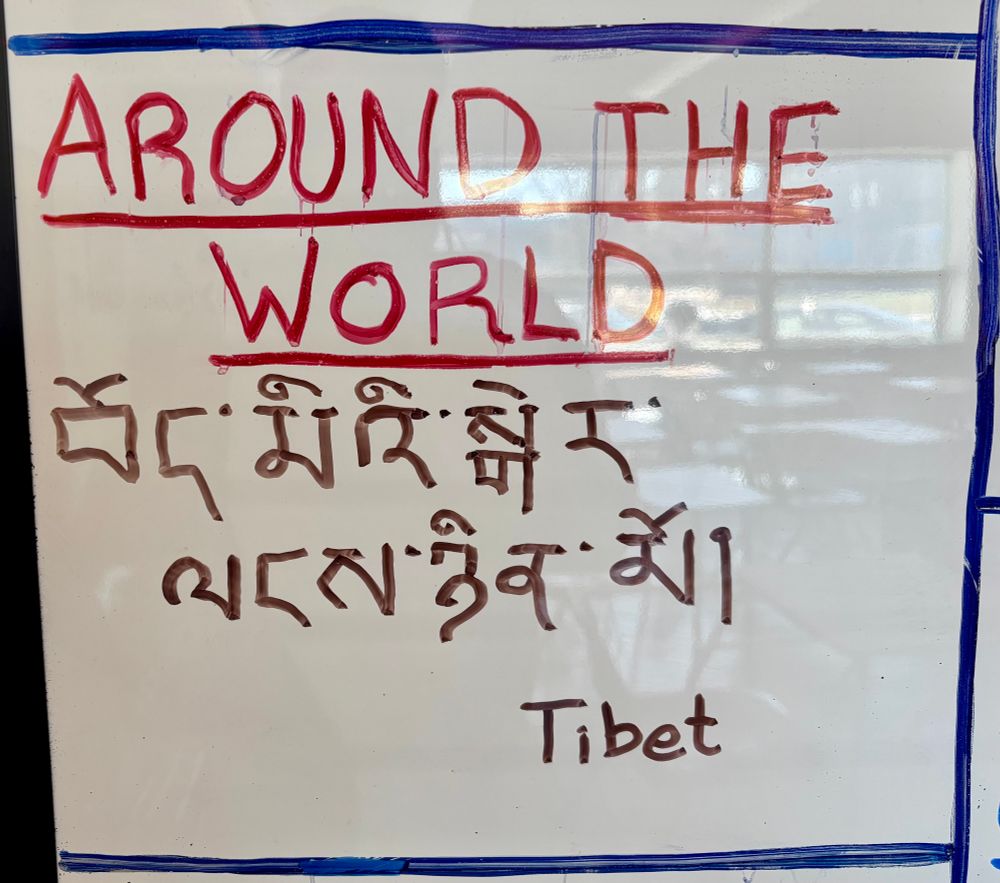 AROUND THE
WORLD
བོད་མིརི་སྒེར་
ལངས་ཉིན་མོ།
Tibet